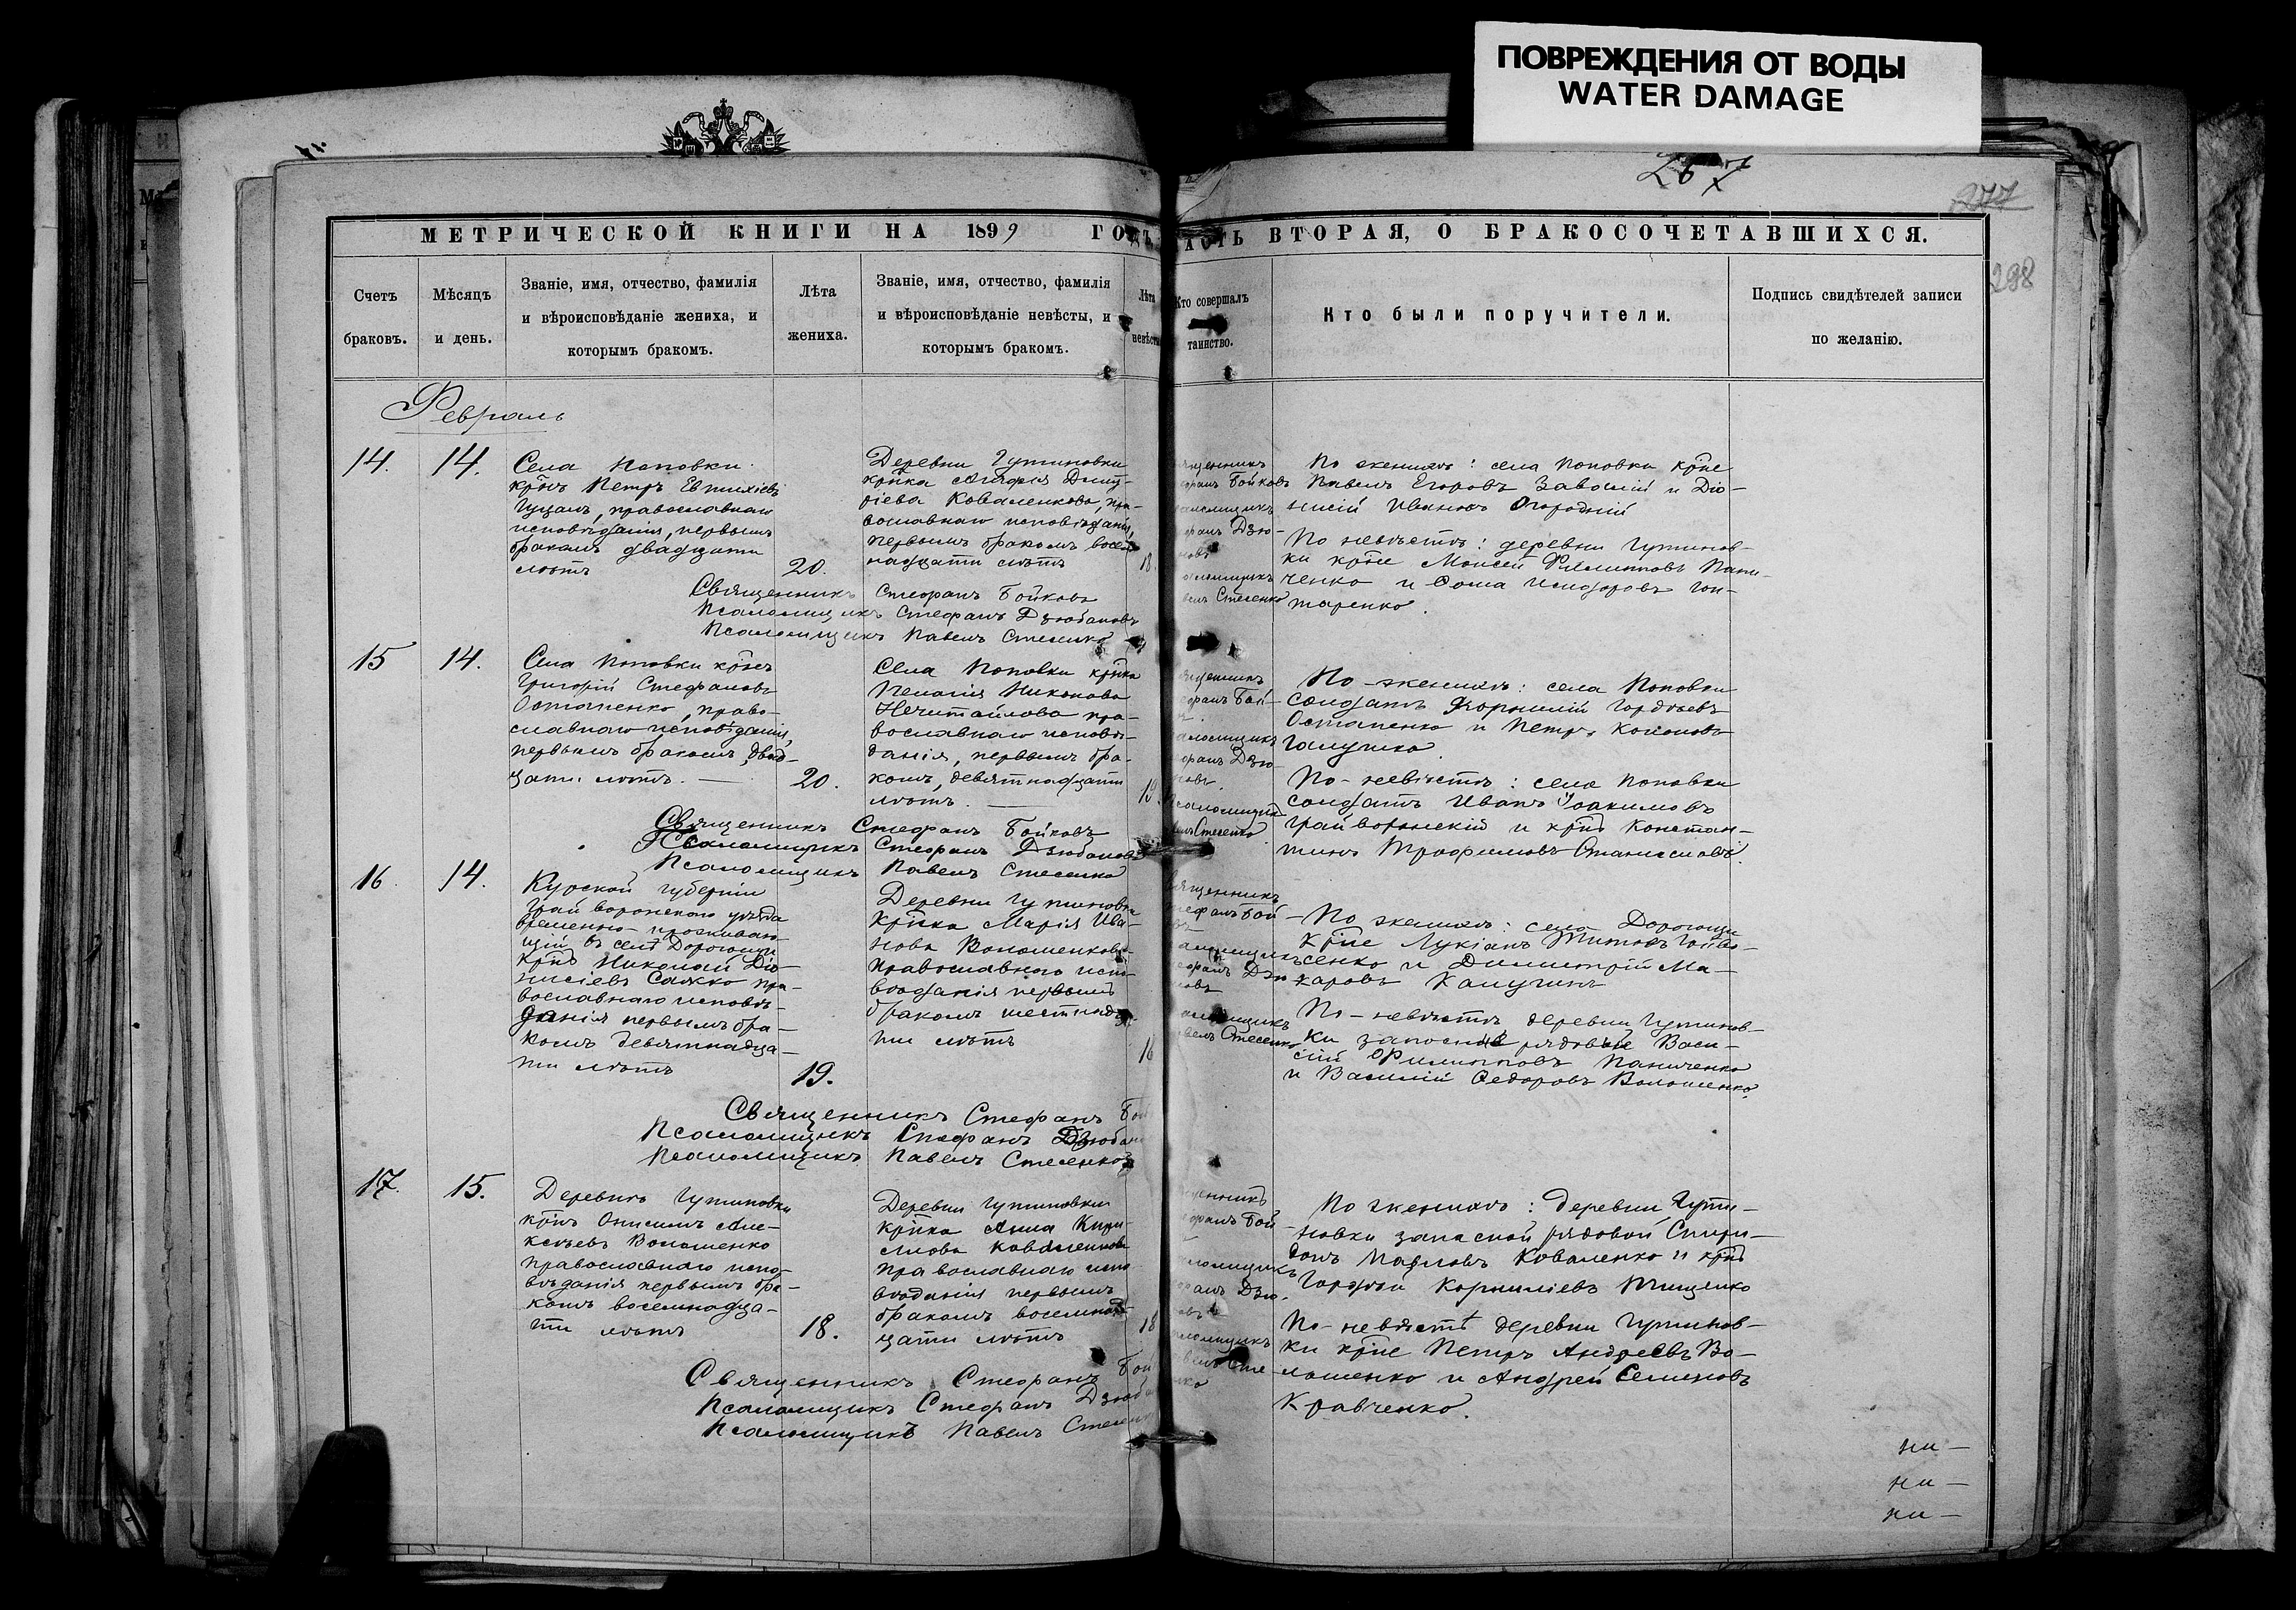 ПОВРЕЖДЕНИЯ ОТ ВОДЫ
WATER DAMAGE
277
298
МЕТРИЧЕСКОЙ КНИГИ НА 1899 ГОДЪ
ЧАСТЬ ВТОРАЯ, О БРАКОСОЧЕТАВШИХСЯ.
Счетъ
браковъ.
Мѣсяцъ
и день.
Званіе, имя, отчество, фамилія
и вѣроисповѣданіе жениха, и
которымъ бракомъ.
Лѣта
жениха.
Званіе, имя, отчество, фамилія
и вѣроисповѣданіе невѣсты, и
которымъ бракомъ.
Лѣта
невѣсты
Кто совершалъ
таинство.
Кто были поручители.
Подпись свидѣтелей записи
по желанію.
Февраль
14.
14.
Села Поповки
крнъ Петръ Евтихіевъ
православнаго
исповѣданія, первымъ
бракомъ двадцати
лѣтъ
20.
Деревни Гутиновки
крнка Агафія Дмит-
ріева Коваленкова, пра-
вославнаго исповѣданія,
первымъ бракомъ восем-
надцати лѣтъ
18
Священникъ Стефанъ Бойковъ
Псаломщикъ Стефанъ Дзюбановъ
Псаломщикъ Павелъ Стесенко
По женихѣ: села Поповки крне
Павелъ Егоровъ Завошій и Діо-
нисій Ивановъ Огородній
По невѣстѣ: деревни Гутинов-
ки крне Моисей Филипповъ Пани-
ченко и Фома Исидоровъ Гон-
таренко.
15
14.
Села Поповки крнъ
Григорій Стефановъ
Остапенко, право-
славнаго исповѣданія,
первымъ бракомъ, двад-
цати лѣтъ.
20.
Села Поповки крнка
Пелагія Никонова
Нечитайлова пра-
вославнаго исповѣ-
данія, первымъ бра-
комъ, девятнадцати
лѣтъ.
19.
Священникъ Стефанъ Бойковъ
Псаломщикъ Стефанъ Дзюбановъ
Псаломщикъ Павелъ Стесенко
По-женихѣ: села Поповки
солдатъ Корнилій Гордѣевъ
Остапенко и Петръ Кононовъ
Галушка
По-невѣстѣ: села Поповки
солдатъ Иванъ Іоакимовъ
Грайворонскій и крнъ Констан-
тинъ Трофимовъ Станиславъ.
16.
14.
Курской губерніи
Грайворонскаго уѣзда
временно-проживаю-
щій въ селѣ Дорогощи
крнъ Николай Діо-
нисіевъ Сажко пра-
вославнаго исповѣ-
данія первымъ бра-
комъ девятнадца-
ти лѣтъ
19.
Деревни Гутиновки
крнка Марія Ива-
нова Волошенкова
православнаго испо-
вѣданія первымъ
бракомъ шестнадца-
ти лѣтъ
16
Священникъ Стефанъ Бой
Псаломщикъ Стефанъ Дзюбан
Псаломщикъ Павелъ Стесенко
По женихѣ: села Дорогощи
крне Лукіанъ Титовъ
и Димитрій Ма-
каровъ Калугинъ
По-невѣстѣ деревни Гутинов-
ки запасные рядовые Васи-
лій Филипповъ Паниченко
и Василій Федоровъ Волошенко.
17.
15.
Деревни Гутиновки
крнъ Онисимъ Але-
ксѣевъ Волошенко
православнаго испо-
вѣданія первымъ бра-
комъ восемнадца-
ти лѣтъ
18.
Деревни Гутиновки
крнка Анна Кири-
лова Коваленкова
православнаго испо-
вѣданія первымъ
бракомъ восемнад-
цати лѣтъ
18
Священникъ Стефанъ Бой
Псаломщикъ Стефанъ Дзюба
Псаломщикъ Павелъ Стесен
По женихѣ: деревни Гути-
новки запасной рядовой Спири-
донъ Павловъ Коваленко и крнъ
Гордѣй Корниліевъ Тищенко
По-невѣстѣ деревни Гутинов-
ки крне Петръ Андреевъ Во-
лошенко и Андрей Семеновъ
Кравченко.
ни-
ни-
ни-